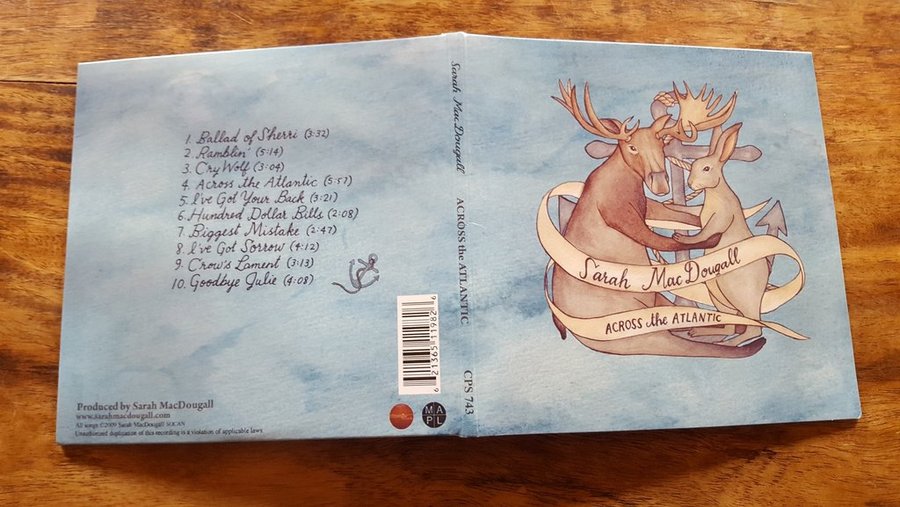 1. Ballad of Sherri (3:32)
2. Ramblin' (5:14)
3. Cry Wolf (3:04)
4. Across the Atlantic (5:57)
5. I've Got Your Back (3:21)
6. Hundred Dollar Bills (2:08)
7. Biggest Mistake (2:47)
8. I've Got Sorrow (4:12)
9. Crow's Lament (3:13)
10. Goodbye Julie (4:08)
Produced by Sarah MacDougall
www.sarahmacdougall.com
All songs ©2009 Sarah MacDougall SOCAN
Unauthorized duplication of this recording is a violation of applicable laws
6 21365 11982 6
M A
P L
Sarah MacDougall ACROSS the ATLANTIC CPS 743
Sarah MacDougall
ACROSS the ATLANTIC